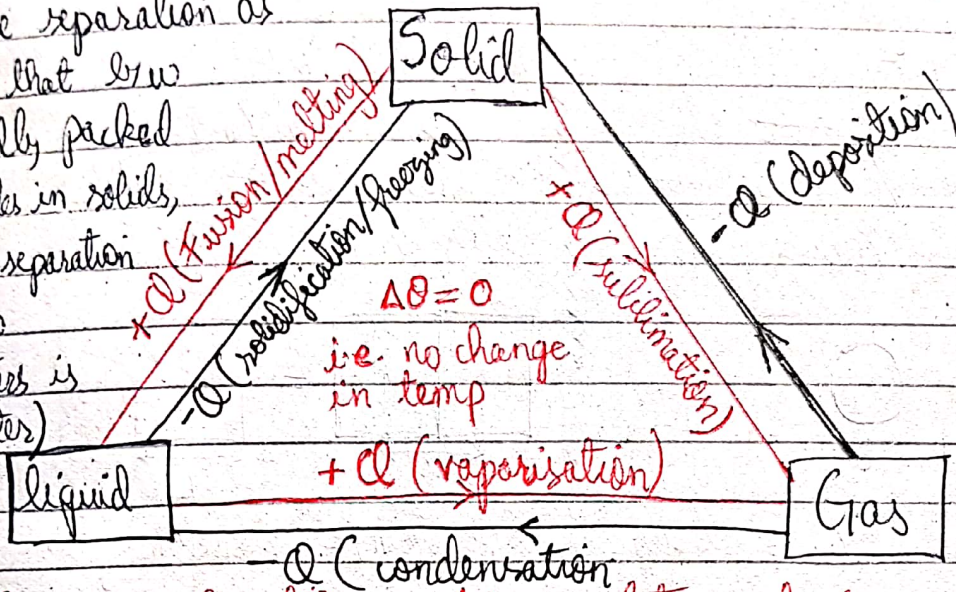 separation as
Solid
that b/w
packed
in solids,
separation
+Q (Fusion/melting)
-Q (solidification/freezing)
+Q (sublimation)
-Q (deposition)
Δθ = 0
i.e. no change
in temp
is
liquid
+Q (vaporisation)
Gas
-Q (condensation